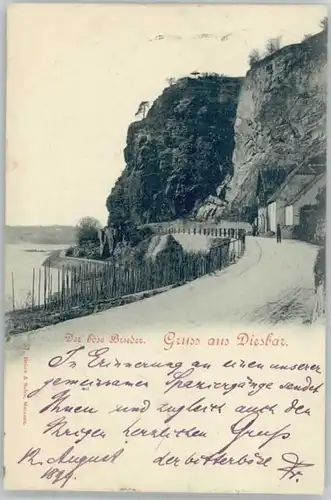 Der böse Bruder. Gruss aus Diesbar.
In Erinnerung an einen unserer
gemeinsamen Spaziergänge sendet
Ihnen und zugleich auch den
Ihrigen herzlichen Gruß
12. August der bitterböse Fr.
1899.